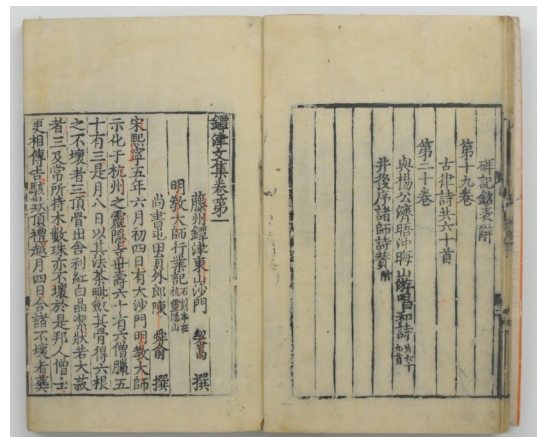 碑記銘表辭
第十九卷
古律詩共六十首
第二十卷
與楊公濟晤沖晦山遊唱和詩共六十九首
并後序諸師詩贊附
鐔津文集卷第一
藤州鐔津東山沙門 契嵩 撰
明教大師行業記石刻本在杭靈隱山
尚書屯田員外郎陳 舜俞 撰
宋熙寧五年六月初四日有大沙門明教大師
示化于杭州之靈隱寺世壽六十有六僧臘五
十有三是月八日以其法荼毗斂其骨得六根
之不壞者三頂骨出舍利紅白晶潔狀若大菽
者三及常所持木數珠亦不壞於是邦人僧士
更相傳告駭嘆頂禮越月四日合諸不壞者葬